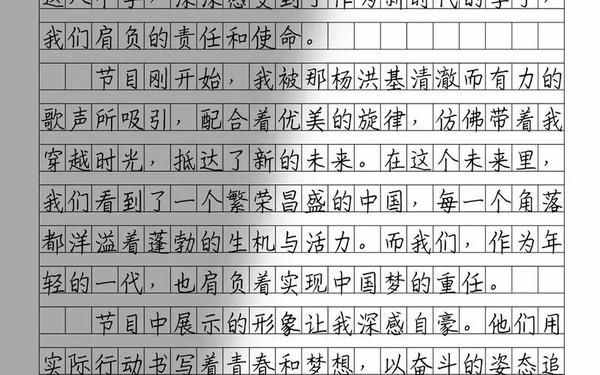 这八个字，深深感受到了作为新时代的学子，
我们肩负的责任和使命。
节目刚开始，我被那杨洪基清澈而有力的
歌声所吸引，配合着优美的旋律，仿佛带着我
穿越时光，抵达了新的未来。在这个未来里，
我们看到了一个繁荣昌盛的中国，每一个角落
都洋溢着蓬勃的生机与活力。而我们，作为年
轻的一代，也肩负着实现中国梦的重任。
节目中展示的形象让我深感自豪。他们用
实际行动书写着青春和梦想，以奋斗的姿态追